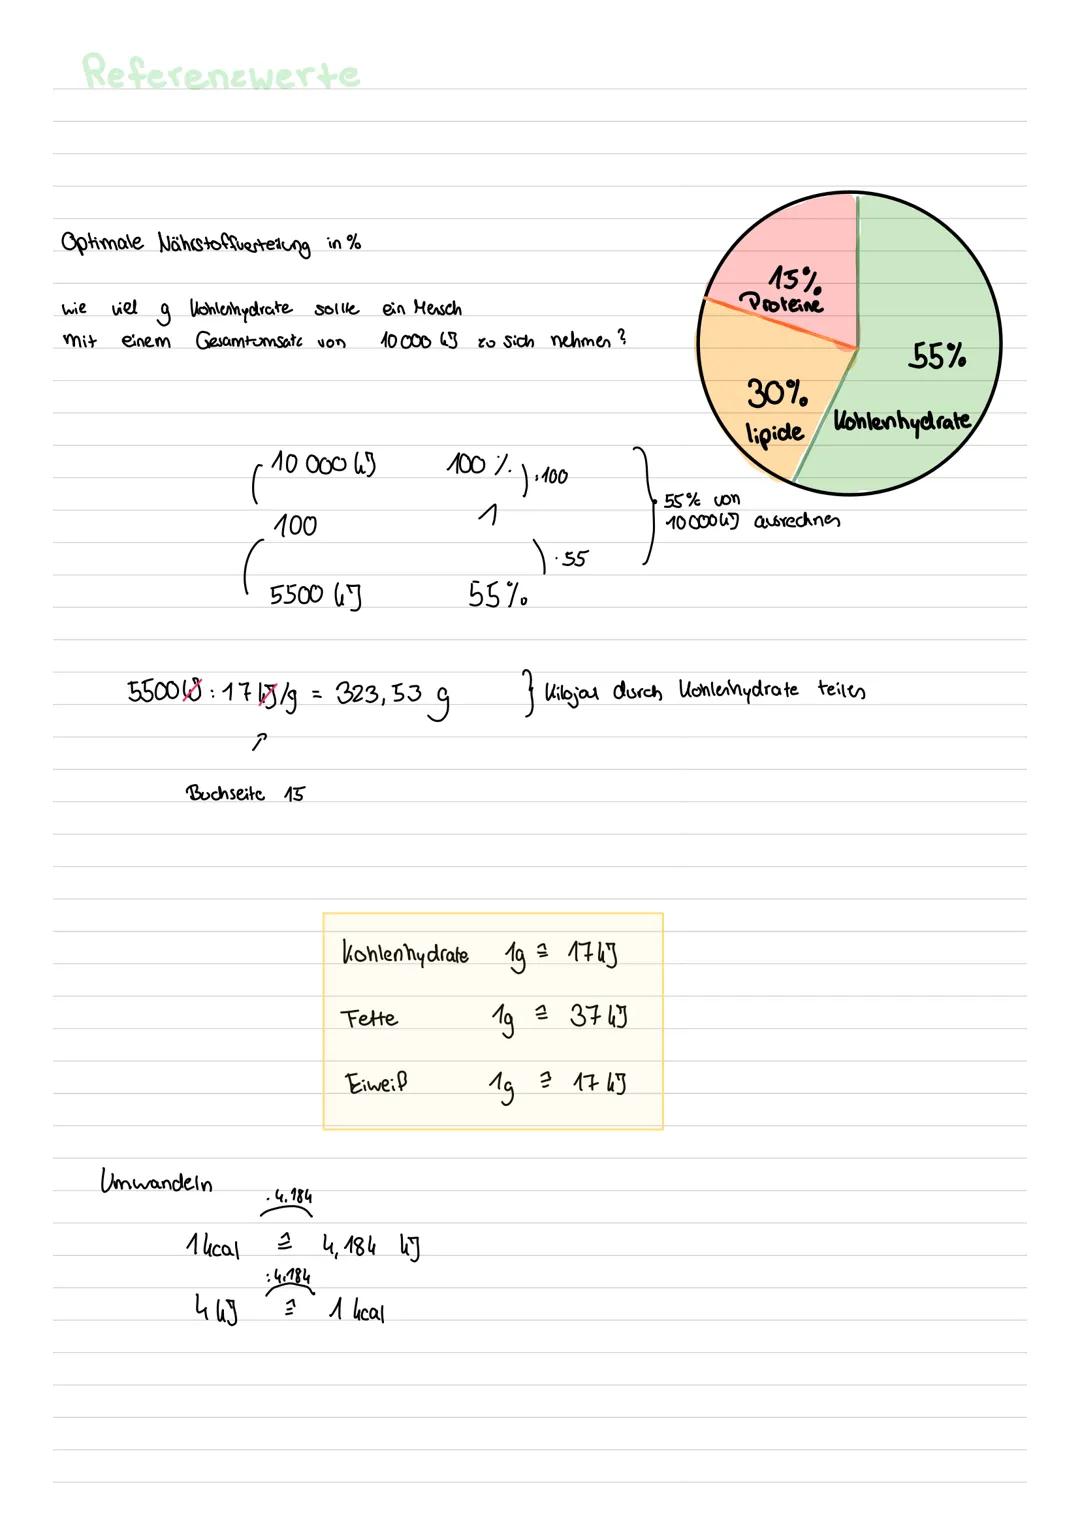 Referenzwerte
Optimale Nährstoffverteilung in %
wie viel g Kohlenhydrate sollte ein Mensch
mit einem Gesamtumsatz von 10 000 kJ zu sich nehmen?
15%
Proteine
55%
Kohlenhydrate
30%
lipide
10 000 kJ 100 %
:100
100 1
·55
5500 kJ 55%
55% von
10000 kJ ausrechnen
5500 kJ : 17 kJ/g = 323,53 g } Kilojoul durch Kohlenhydrate teilen
↗
Buchseite 15
Kohlenhydrate 1g ≙ 17 kJ
Fette 1g ≙ 37 kJ
Eiweiß 1g ≙ 17 kJ
Umwandeln
· 4.184
1 kcal ≙ 4,184 kJ
: 4.184
4 kJ ≙ 1 kcal